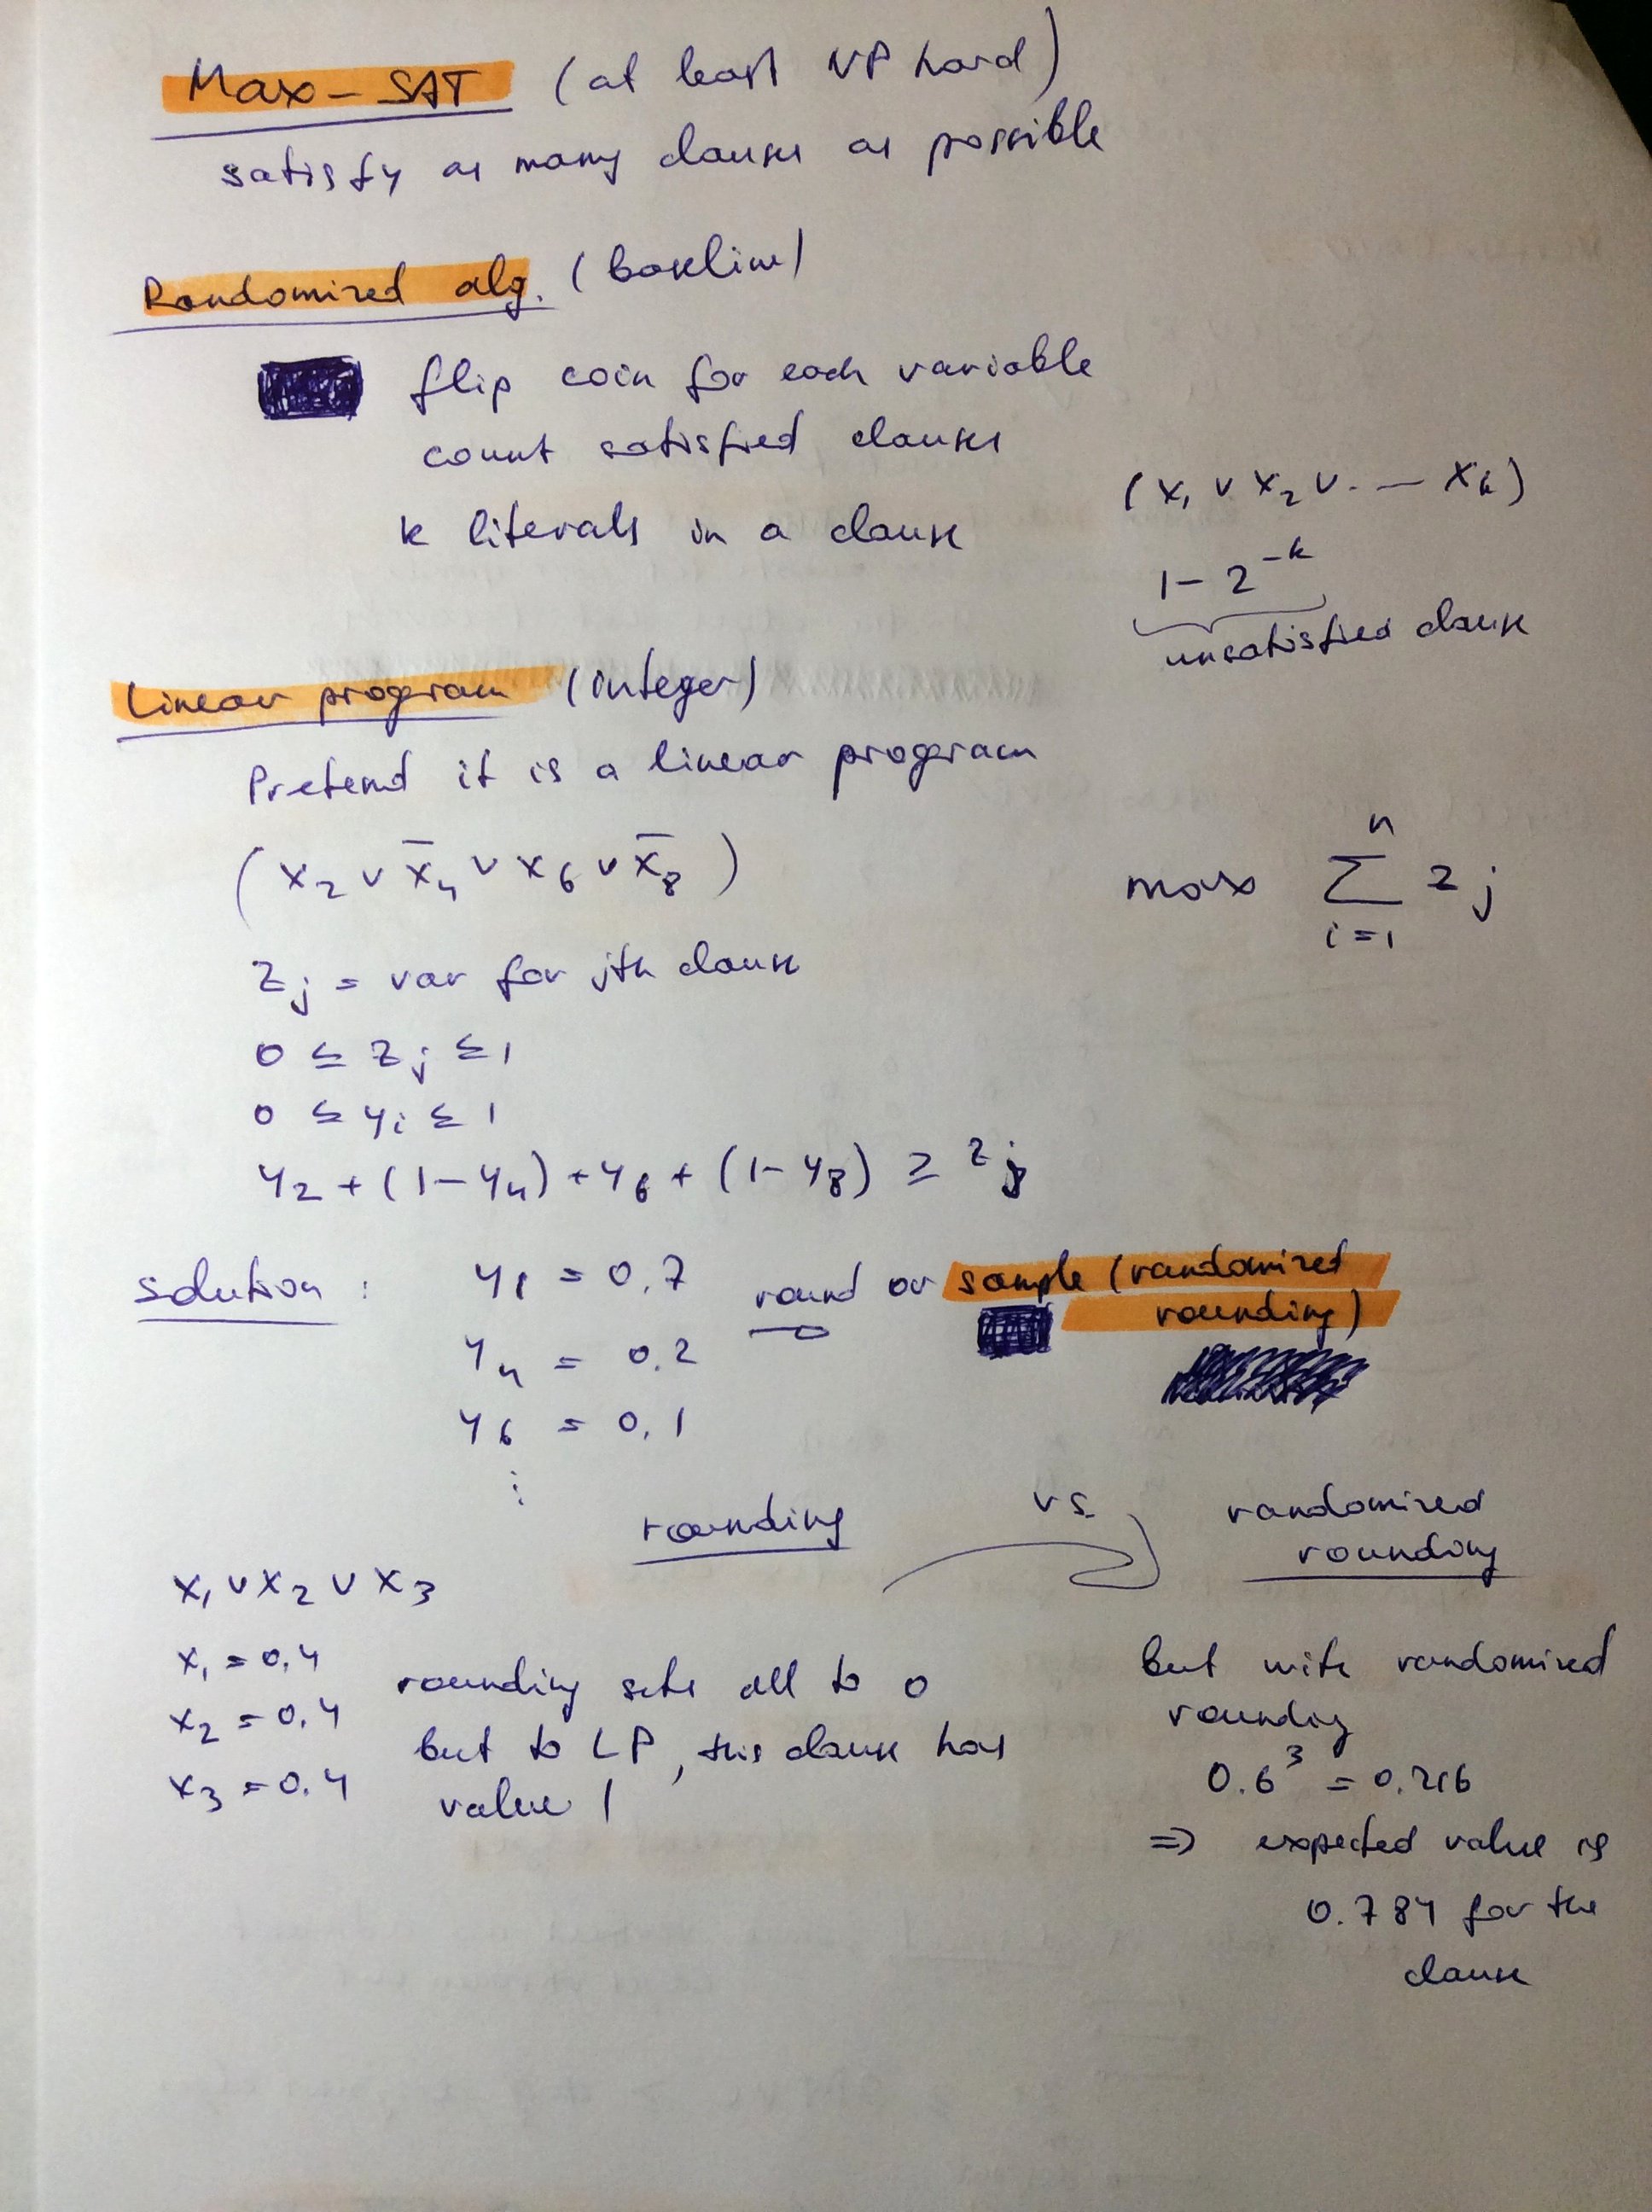 Max-SAT (at least NP hard)
satisfy as many clauses as possible
Randomized alg. (baseline)
flip coin for each variable
count satisfied clauses
k literals in a clause
(x₁ ∨ x₂ ∨ . — xₖ)
1 - 2^-k
unsatisfied clause
Linear program (integer)
Pretend it is a linear program
(x₂ ∨ x̄₄ ∨ x₆ ∨ x̄₈)
max ∑_{i=1}^{n} zⱼ
zⱼ = var for jth clause
0 ≤ zⱼ ≤ 1
0 ≤ yᵢ ≤ 1
y₂ + (1-y₄) + y₆ + (1-y₈) ≥ zⱼ
solution : y₁ = 0,7 round or sample (randomized
rounding)
y₄ = 0.2
y₆ = 0,1
⋮
rounding vs. randomized
rounding
x₁ ∨ x₂ ∨ x₃
x₁ = 0,4
x₂ = 0,4
x₃ = 0.4
rounding sets all to 0
but to LP, this clause has
value 1
but with randomized
roundig
0.6³ = 0.216
⇒ expected value is
0.784 for the
clause